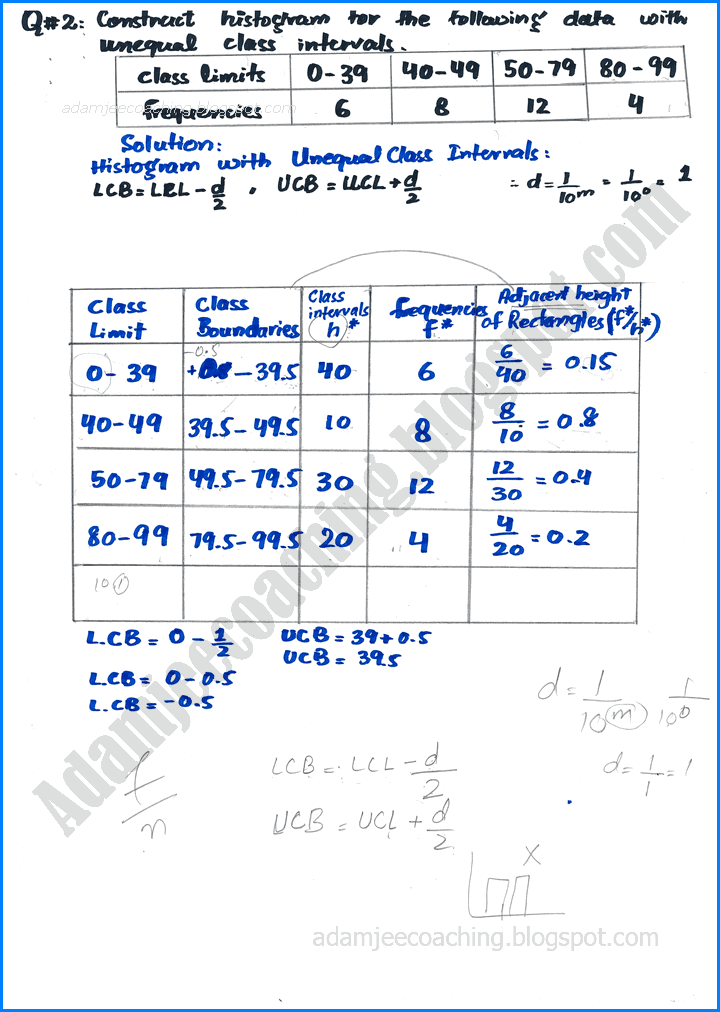 Q#2: Construct histogram for the following data with
unequal class intervals.
class limits 0-39 40-49 50-79 80-99
adamjeecoaching.blogspot.com
Frequencies 6 8 12 4
Solution:
Histogram with Unequal Class Intervals:
LCB = LCL - d/2 , UCB = UCL + d/2 ∵ d = 1/10^m = 1/10^0 = 1
Class Limit Class Boundaries Class intervals h* Fequencies f* Adjacent height of Rectangles (f*/h*)
-0.5
0-39 - 39.5 40 6 6/40 = 0.15
40-49 39.5-49.5 10 8 8/10 = 0.8
50-79 49.5-79.5 30 12 12/30 = 0.4
80-99 79.5-99.5 20 4 4/20 = 0.2
L.CB = 0 - 1/2 UCB = 39 + 0.5
UCB = 39.5
L.CB = 0 - 0.5
L.CB = -0.5
d = 1/10^m 1/10^0
LCB = LCL - d/2 d = 1/1 = 1
f/n
UCB = UCL + d/2
X
Adamjeecoaching.blogspot.com
adamjeecoaching.blogspot.com